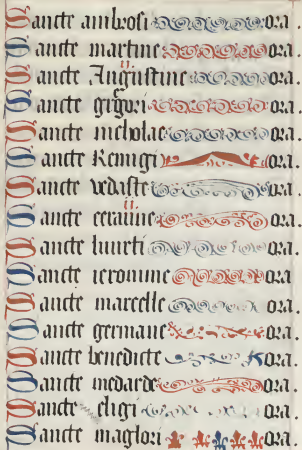 Sancte ambrosi ora.
Sancte martine ora.
Sancte Augustine ii ora.
Sancte grigori ora.
Sancte nicholae ora.
Sancte Remigi ora.
Sancte vedaste ora.
Sancte ceraune ii ora.
Sancte ora.
Sancte ieronime ora.
Sancte marcelle ora.
Sancte germane ora.
Sancte benedicte ora.
Sancte medarde ora.
Sancte eligi ora.
Sancte maglori ora.